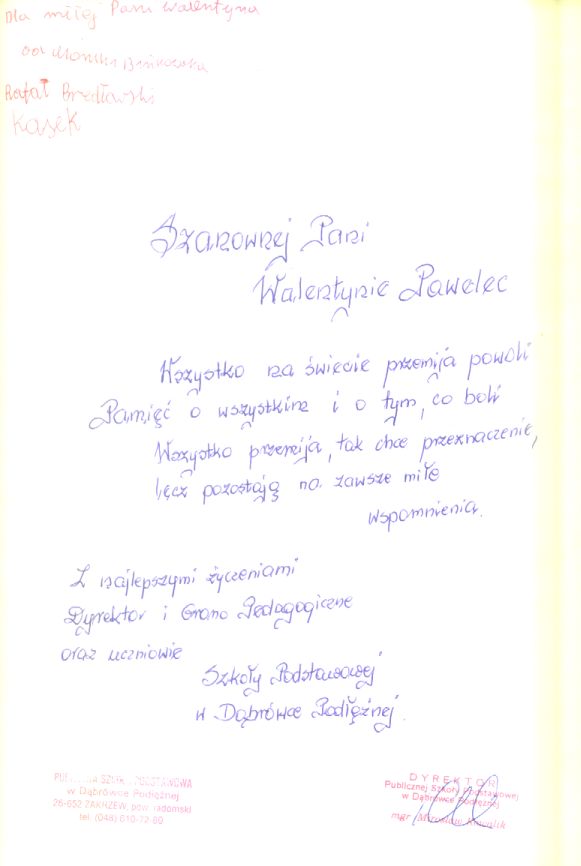 Dla miłej Pani Walentyna
od
Rafał Bredławski
Kasek
Szanownej Pani
Walentynie Pawelec
Wszystko na świecie przemija powoli
Pamięć o wszystkim i o tym, co boli
Wszystko przemija, tak chce przeznaczenie,
lecz pozostają na zawsze miłe
wspomnienia.
Z najlepszymi życzeniami
Dyrektor i Grono Pedagogiczne
oraz uczniowie
Szkoły Podstawowej
w Dąbrówce Podłężnej.
PUBLICZNA SZKOŁA PODSTAWOWA
w Dąbrówce Podłężnej
26-652 ZAKRZEW, pow. radomski
tel. (048) 610-72-80
DYREKTOR
Publicznej Szkoły Podstawowej
w Dąbrówce Podłężnej
mgr Mirosław